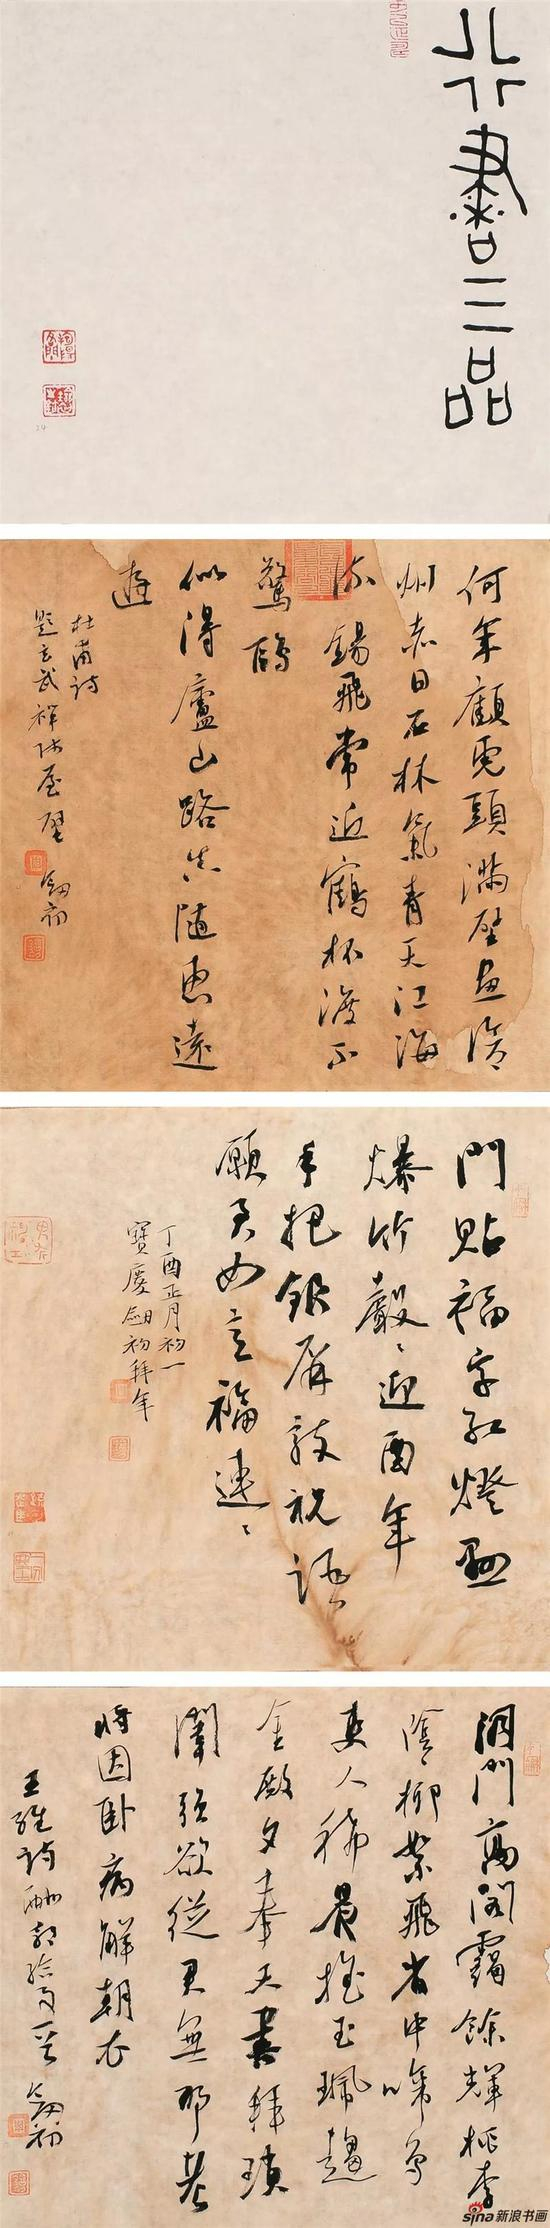 行書三品
何年顧虎頭滿壁畫滄
州赤日石林氣青天江海
流錫飛常近鶴杯渡不
驚鷗
似得廬山路真随惠遠
遊
杜甫詩
題玄武禅師屋壁 劍初
門貼福字紅燈懸
爆竹聲〻迎酉年
手把銀屏敲祝語
願君如意福連〻
丁酉正月初一
寶慶劍初拜年
洞門高閣靄餘輝桃李
陰〻柳絮飛省中啼鳥
吏人稀晨摇玉珮趨
金殿夕奉天書拜瑣
闈強欲從君無那老
將因卧病解朝衣
王維詩酬郭給事 劍初
sina新浪书画